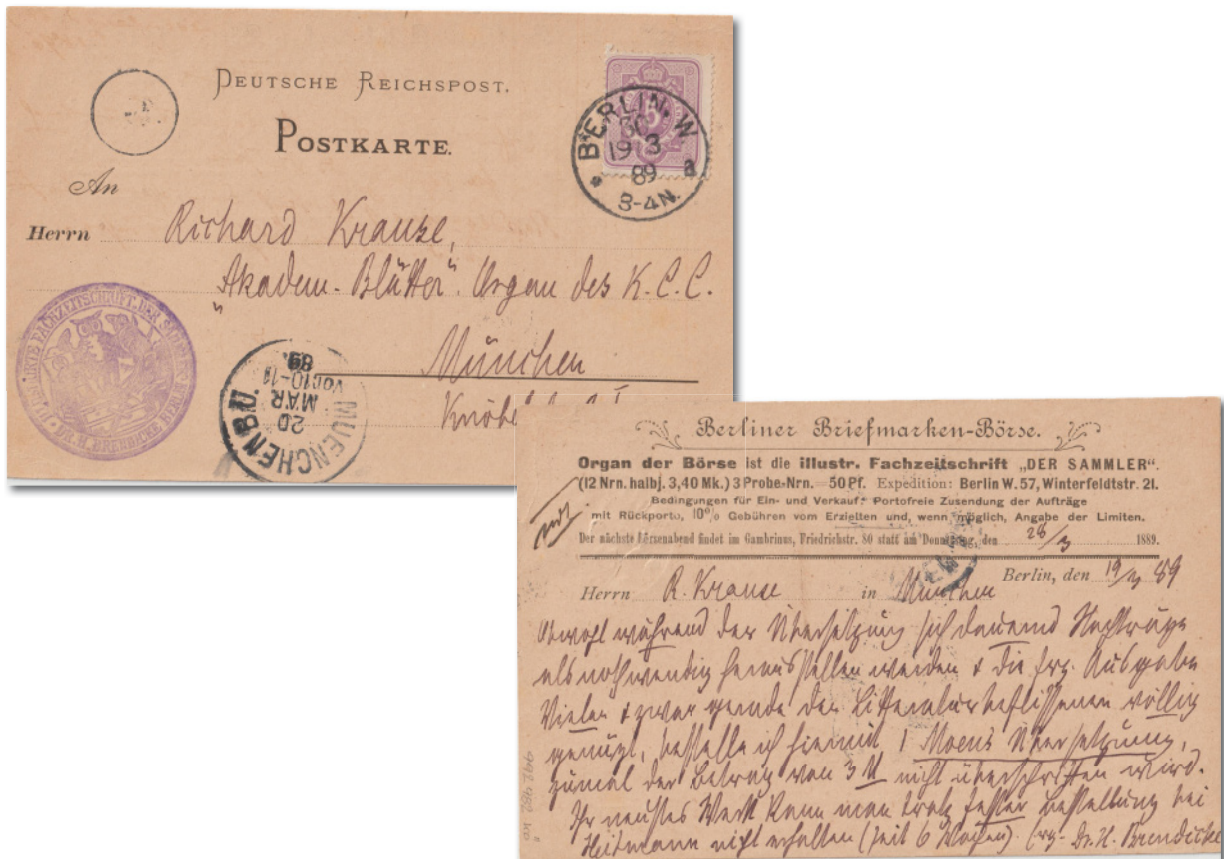 DEUTSCHE REICHSPOST.
POSTKARTE.
BERLIN. W
19 3
89
3-4N.
a
An
Herrn Richard Krause,
"Akadem. Blätter". Organ des K. C. C.
München
ILLUSTRIRTE FACHZEITSCHRIFT. DER SAMMLER DR. H. BRENDICKE BERLIN
MUENCHEN B.U.
20
MAR
VOR 10-11
89
Berliner Briefmarken-Börse.
Organ der Börse ist die illustr. Fachzeitschrift „DER SAMMLER“.
(12 Nrn. halbj. 3,40 Mk.) 3 Probe-Nrn. 50 Pf. Expedition: Berlin W. 57, Winterfeldtstr. 21.
Bedingungen für Ein- und Verkauf: Portofreie Zusendung der Aufträge
mit Rückporto, 10% Gebühren vom Erzielten und, wenn möglich, Angabe der Limiten.
Der nächste Börsenabend findet im Gambrinus, Friedrichstr. 80 statt am Donnerstag, den 28/3 1889.
Berlin, den 19/3 89
Herrn R. Krause in München
Obwohl während der Übersetzung sich dauernd Nachträge
als nothwendig herausstellen werden & die frz. Ausgabe
Vielen & zwar gerade den Litteraturbeflissenen völlig
genügt, bestelle ich hiermit 1 Moens Übersetzung,
zumal der Betrag von 3 M nicht überschritten wird.
Ihr neustes Werk kann man trotz fester Bestellung bei
Heitmann nicht erhalten (seit 6 Wochen). Dr. H. Brendicke